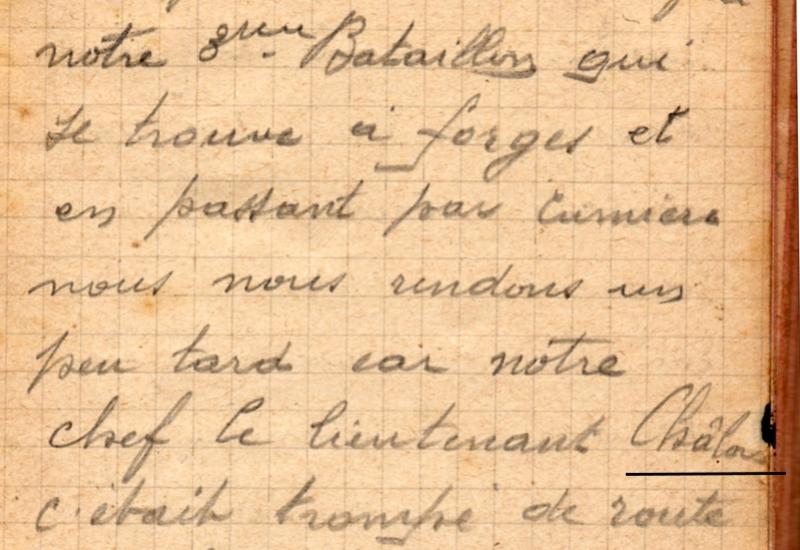 notre 3eme Bataillon qui
se trouve à forges et
en passant par Cumiere
nous nous rendons un
peu tard car notre
chef le lieutenant Châlon
c'était trompé de route